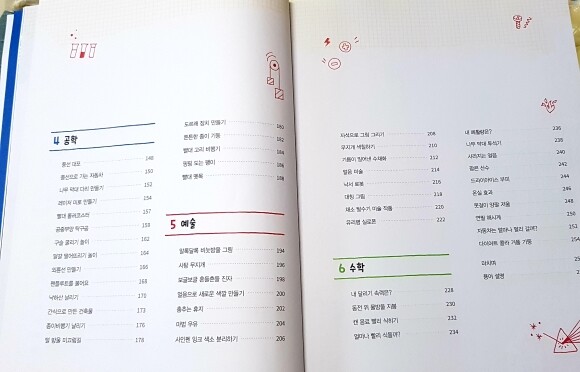 4 공학
풍선 대포 148
풍선으로 가는 자동차 150
나무 막대 다리 만들기 152
레이저 미로 만들기 154
빨대 롤러코스터 157
공중부양 탁구공 158
구슬 굴리기 놀이 162
달걀 떨어뜨리기 놀이 164
외풍선 만들기 166
팬플루트를 불어요 168
낙하산 날리기 170
간식으로 만든 건축물 173
종이비행기 날리기 176
쌀 밥풀 미끄럼길 178
도르래 장치 만들기 180
튼튼한 종이 기둥 182
빨대 고리 비행기 184
핑핑 도는 팽이 186
빨대 뗏목 188
5 예술
알록달록 비눗방울 그림 194
사탕 무지개 196
보글보글 흔들흔들 진자 198
얼음으로 새로운 색깔 만들기 200
춤추는 휴지 202
마법 우유 204
사인펜 잉크 색소 분리하기 206
자석으로 그림 그리기 208
무지개 색칠하기 210
기름이 빚어낸 수채화 212
얼음 미술 214
낙서 로봇 216
태칭 그림 218
채소 탈수기 미술 작품 220
유리병 실로폰 222
6 수학
내 달리기 속력은? 228
동전 위 물방울 지붕 230
캔 음료 빨리 식히기 232
얼마나 빨리 식을까? 234
내 폐활량은? 236
나무 막대 투석기 238
사라지는 얼음 240
점프 선수 242
드라이아이스 부피 244
온실 효과 246
못질이 양팔 저울 248
연필 해시계 250
자동차는 얼마나 빨리 갈까? 252
다이어트 콜라 거품 기둥 254
마치며
용어 설명